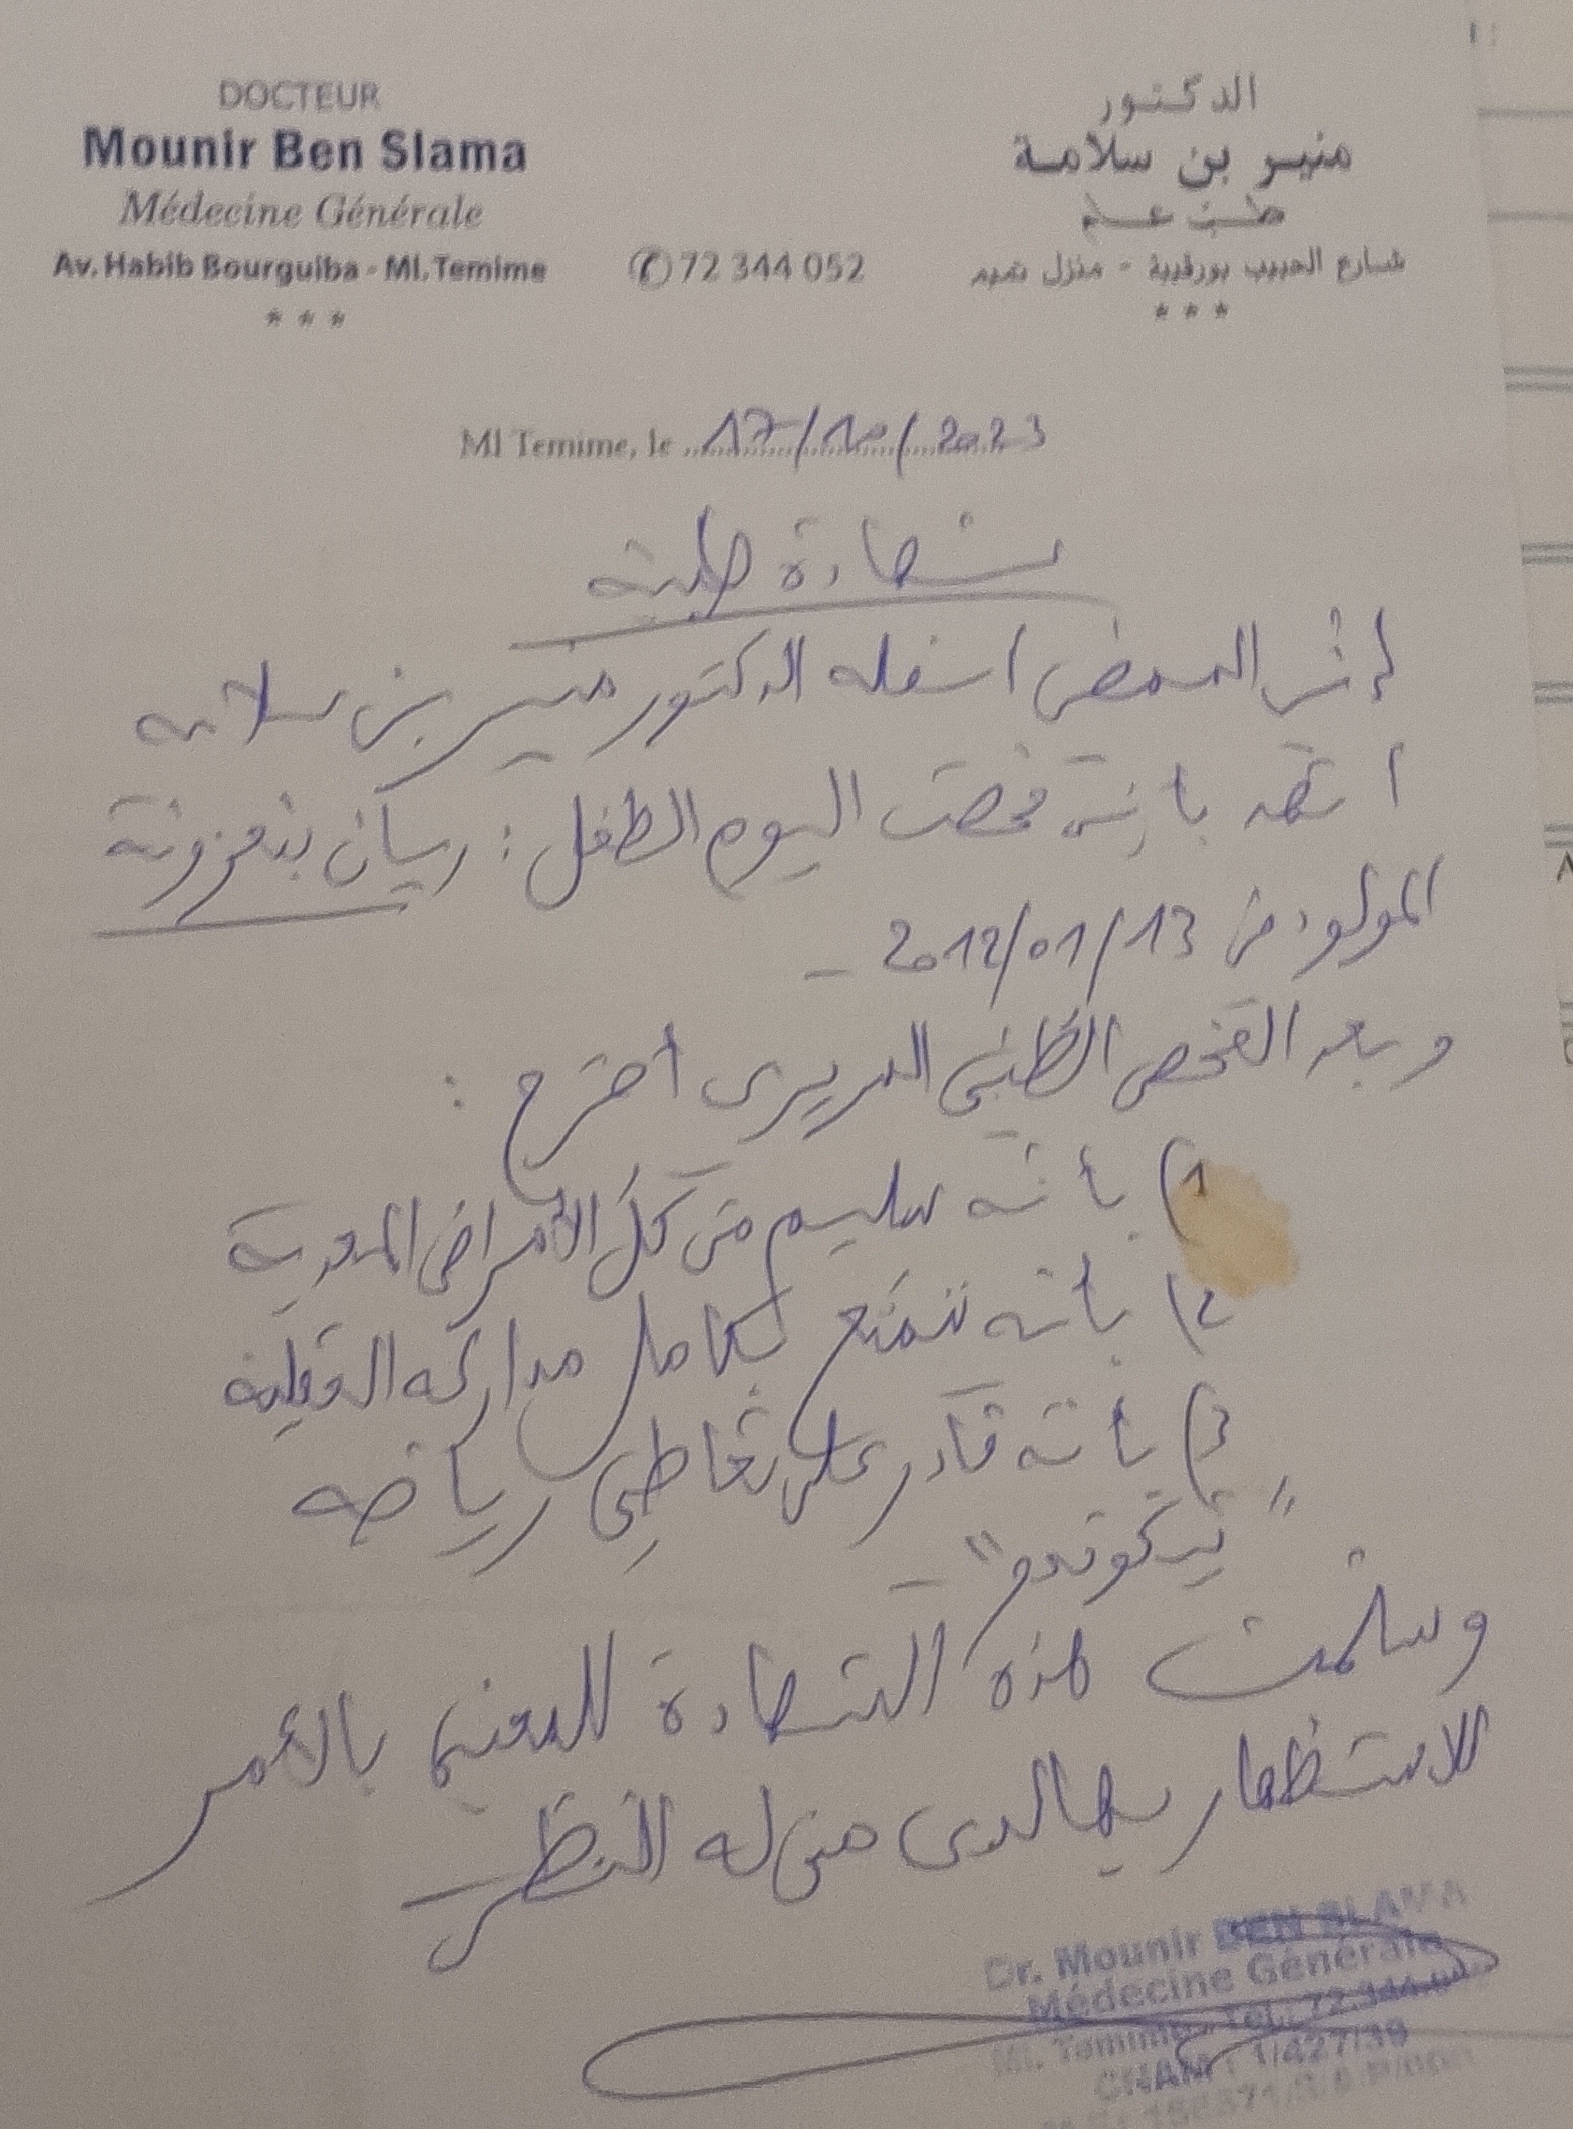 DOCTEUR
Mounir Ben Slama
Médecine Générale
Av. Habib Bourguiba - Ml. Temime
* * *
✆ 72 344 052
الدكتور
منير بن سلامة
طب عام
شارع الحبيب بورقيبة - منزل تميم
* * *
Ml Temime, le 17/10/2023
شهادة طبية
إني الممضي أسفله الدكتور منير بن سلامه
أشهد بأني فحصت اليوم الطفل : ريان بنعزونة
المولود في 2012/01/13 -
و بعد الفحص الطبي السريري أصرح :
1) بأنه سليم من كل الأمراض المعدية
2) بأنه يتمتع بكامل مداركه العقلية
3) بأنه قادر على تعاطي رياضه
" تيكوندو " -
وسلمت هذه الشهادة للمعني بالأمر
للاستظهار بها لدى من له النظر
Dr. Mounir BEN SLAMA
Médecine Générale
Ml. Temime - Tel.: 72.344.0
CNAM : 1/427/39